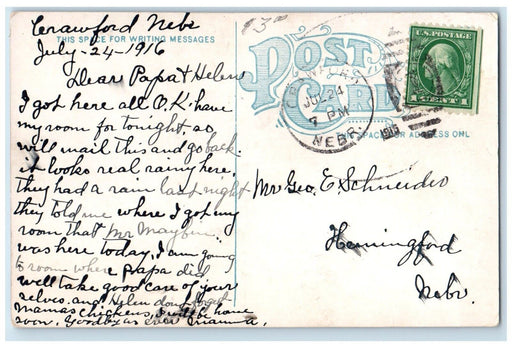 Crawford Nebr
July-24-1916
THIS SPACE FOR WRITING MESSAGES
Dear Papa & Helen
I got here all O.K. have
my room for tonight, so
will mail this and go back.
it looks real rainy here,
they had a rain last night
they told me where I got my
room that Mr
was here today, I am going
to room where papa did
well take good care of your
selves. and Helen don't forget
mamas chickens, I will be home
soon. Goodby as ever mamma.
3
POST CARD
THIS SPACE FOR ADDRESS ONLY
JUL 24
7 PM
NEBR.
1916
U.S. POSTAGE
1 CENT 1
Mr Geo. E. Schneider
Hemingford
Nebr.